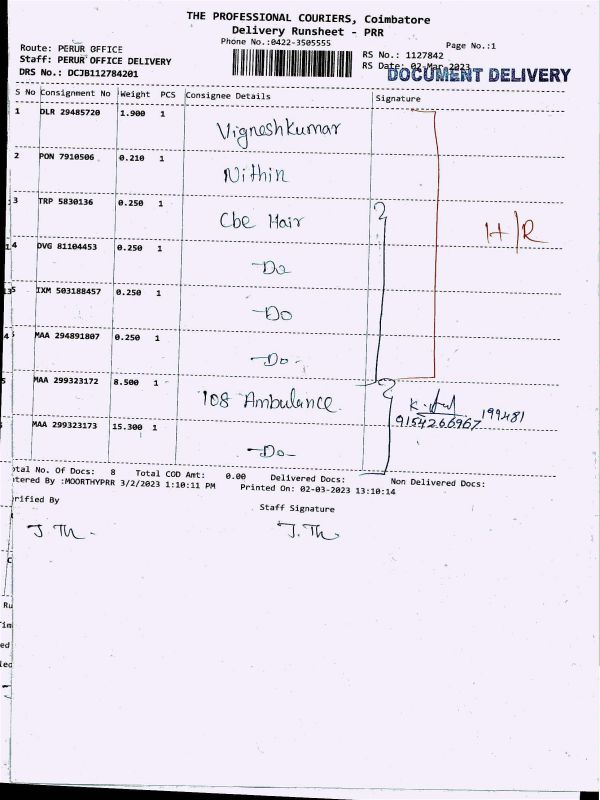 THE PROFESSIONAL COURIERS, Coimbatore
Delivery Runsheet - PRR
Phone No.:0422-3505555
Page No.:1
Route: PERUR OFFICE
RS No.: 1127842
Staff: PERUR OFFICE DELIVERY
RS Date: 02-Mar-2023
DRS No.: DCJB112784201
DOCUMENT DELIVERY
S No Consignment No Weight PCS Consignee Details Signature
1 DLR 29485720 1.900 1 Vigneshkumar
2 PON 7910506 0.210 1 Nithin
3 TRP 5830136 0.250 1 Cbe Hair
H/R
4 DVG 81104453 0.250 1 -Do
5 IXM 503188457 0.250 1 -Do
MAA 294891807 0.250 1 -Do-
MAA 299323172 8.500 1 108 Ambulance
9154266967 199481
MAA 299323173 15.300 1 -Do-
otal No. Of Docs: 8 Total COD Amt: 0.00 Delivered Docs: Non Delivered Docs:
tered By :MOORTHYPRR 3/2/2023 1:10:11 PM Printed On: 02-03-2023 13:10:14
rified By Staff Signature
J. Th J. Th